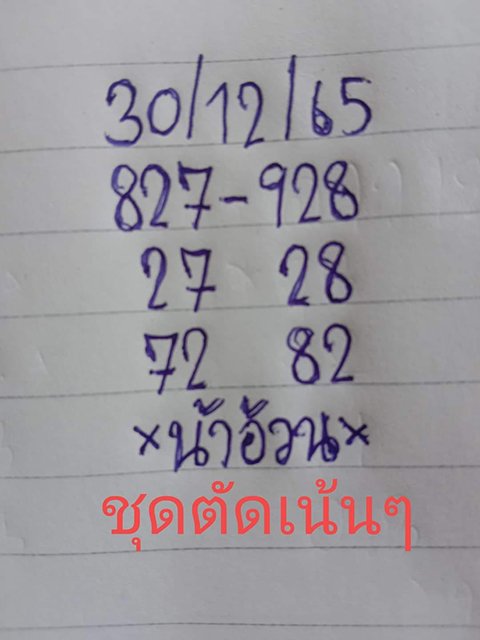 30/12/65
827-928
27 28
72 82
×น้าอ้วน×
ชุดตัดเน้นๆ